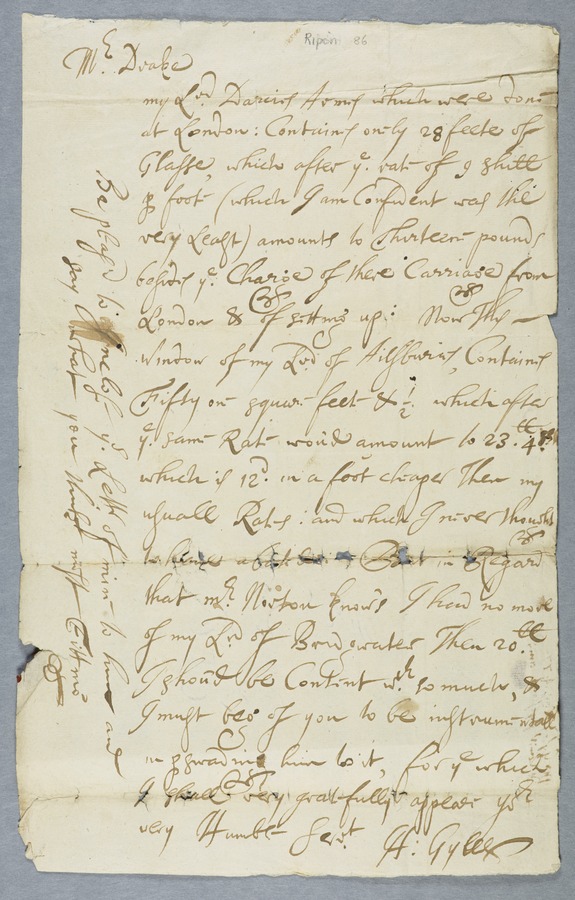 Ripon 86
Mr. Drake
my Lrd Darcies Armes which were done
at London: Containes only 28 feete of
Glasse, which after ye. rate of 9 shill
p foot (which I am Confident was the
very Least) amounts to Thirteene pounds
besides ye. Charge of there Carriage from
London & of setting up: Now This
window of my Lrd of Ailsburies, Containes
Fifty one square feete & 1/2. which after
ye. same Rate would amount to 23.ll 4.s
which is 12d. in a foot cheaper Then my
usuall Rates: and which I never thought
to have abated: But in Regard
that mr. Norton knows I had no more
of my Lrd of Bridgwater Then 20.ll
I should be Content wth so much, &
I must beg of you to be instrumentall
in pswading him to it, for ye which
I shall very gratefully appeare yor
very Humble Servt H: Gyles
Be pleas'd to ye Lettr of mine to him and
say what you think most fitting